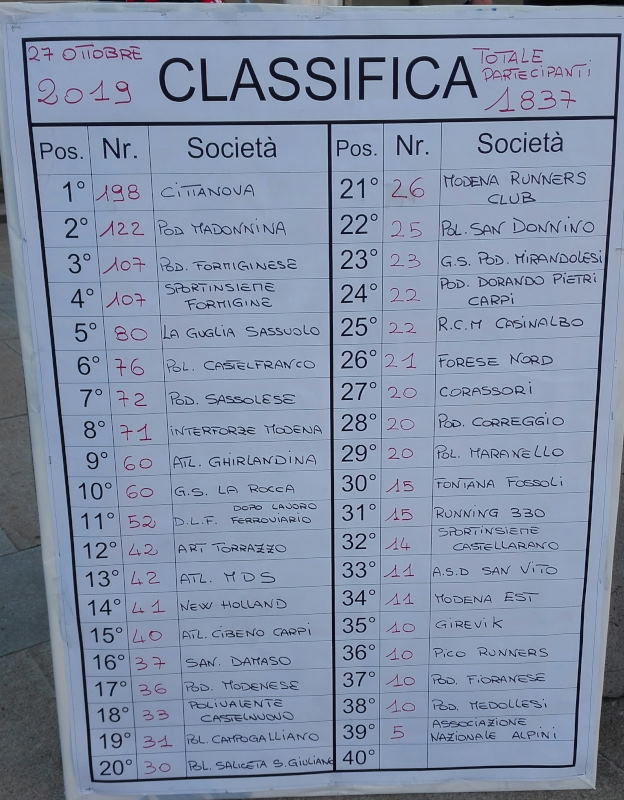 27 OTTOBRE
2019
CLASSIFICA
TOTALE
PARTECIPANTI
1837
Pos. Nr. Società
1° 198 CITTANOVA
2° 122 POD MADONNINA
3° 107 POD. FORMIGINESE
4° 107 SPORTINSIEME
FORMIGINE
5° 80 LA GUGLIA SASSUOLO
6° 76 POL. CASTELFRANCO
7° 72 POD. SASSOLESE
8° 71 INTERFORZE MODENA
9° 60 ATL. GHIRLANDINA
10° 60 G.S. LA ROCCA
11° 52 D.L.F. DOPO LAVORO
FERROVIARIO
12° 42 ART TORRAZZO
13° 42 ATL. MDS
14° 41 NEW HOLLAND
15° 40 ATL. CIBENO CARPI
16° 37 SAN. DAMASO
17° 36 POD. MODENESE
18° 33 POLIVALENTE
CASTELNUOVO
19° 31 POL. CAMPOGALLIANO
20° 30 POL. SALICETA S. GIULIANO
Pos. Nr. Società
21° 26 MODENA RUNNERS
CLUB
22° 25 POL. SAN DONNINO
23° 23 G.S. POD. MIRANDOLESI
24° 22 POD. DORANDO PIETRI
CARPI
25° 22 R.C.M CASINALBO
26° 21 FORESE NORD
27° 20 CORASSORI
28° 20 POD. CORREGGIO
29° 20 POL. MARANELLO
30° 15 FONTANA FOSSOLI
31° 15 RUNNING 330
32° 14 SPORTINSIEME
CASTELLARANO
33° 11 A.S.D SAN VITO
34° 11 MODENA EST
35° 10 GIREVIK
36° 10 PICO RUNNERS
37° 10 POD. FIORANESE
38° 10 POD. MEDOLLESI
39° 5 ASSOCIAZIONE
NAZIONALE ALPINI
40°